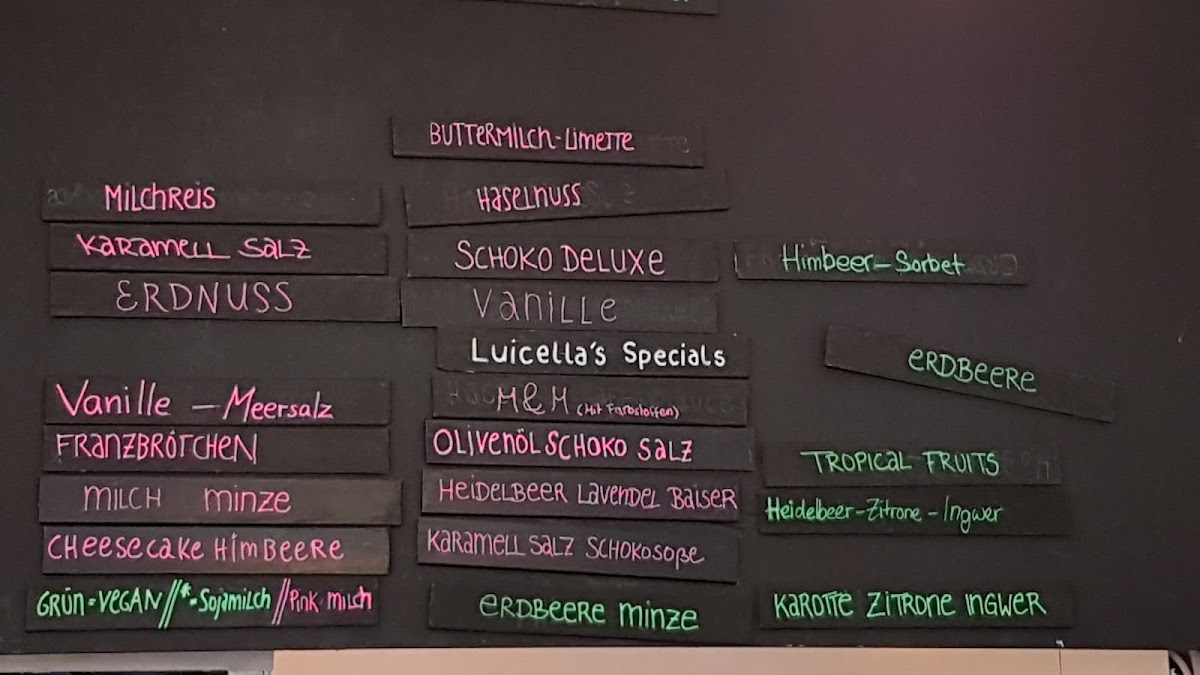 MILCHREIS
KARAMELL SALZ
ERDNUSS
Vanille – Meersalz
FRANZBRÖTCHEN
MILCH minze
CHeeseCAKe HimBeeRe
GRÜN = VEGAN // * = Sojamilch // Pink = milch
BUTTeRMILCH-LimeTTe
HaseLNuss
SCHOKO DeLUXe
VaNILLe
Luicella's Specials
M&M (Mit Farbstoffen)
OLIVENÖL SCHOKO SALZ
HeiDeLBeeR LaVeNDeL BaiseR
KARAMELL SALZ SCHOKOSOßE
eRDBeeRe minze
Himbeer-Sorbet
eRDBeeRe
TROPICAL FRUITS
Heidelbeer-Zitrone-Ingwer
KAROTTe ZiTRONe INGWeR